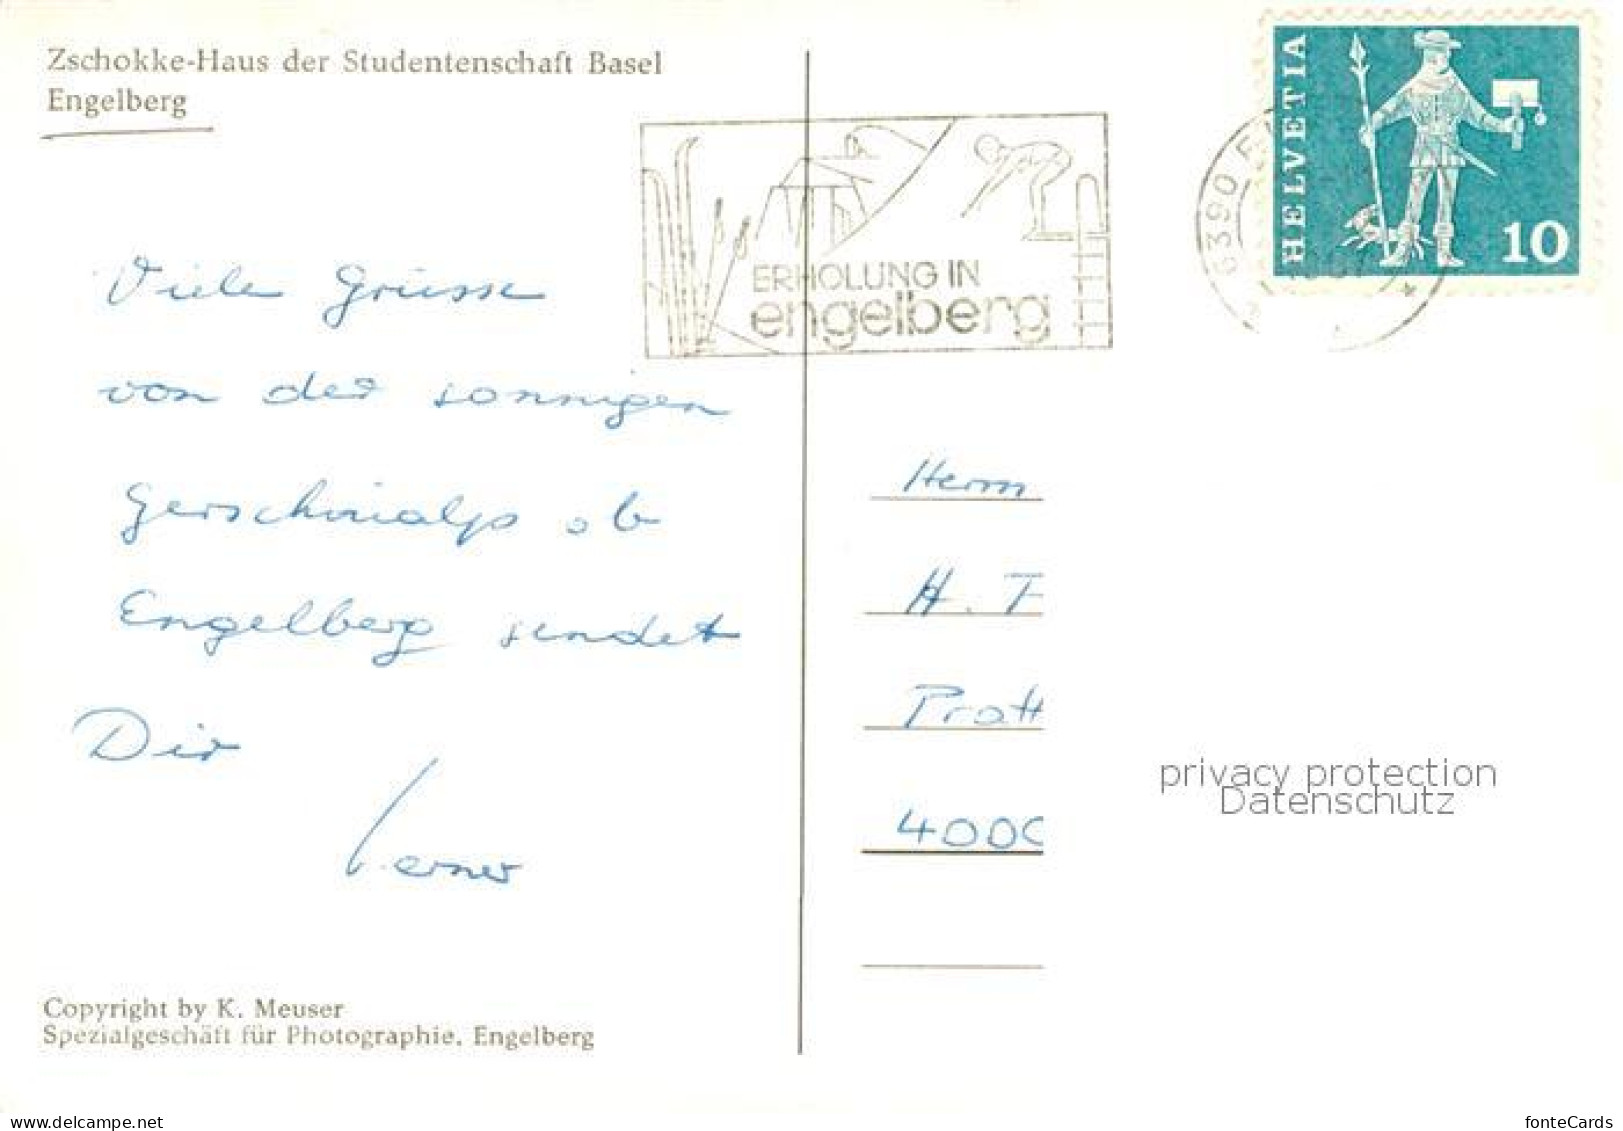 Zschokke-Haus der Studentenschaft Basel
Engelberg
HELVETIA
10
6390
ERHOLUNG IN
engelberg
Viele Grüsse
von der sonnigen
Gerschnialp ob
Engelberg sendet
Dir
Werner
Herrn
H. F
Pratt
4000
privacy protection
Datenschutz
Copyright by K. Meuser
Spezialgeschäft für Photographie, Engelberg
delcampe.net
fonteCards